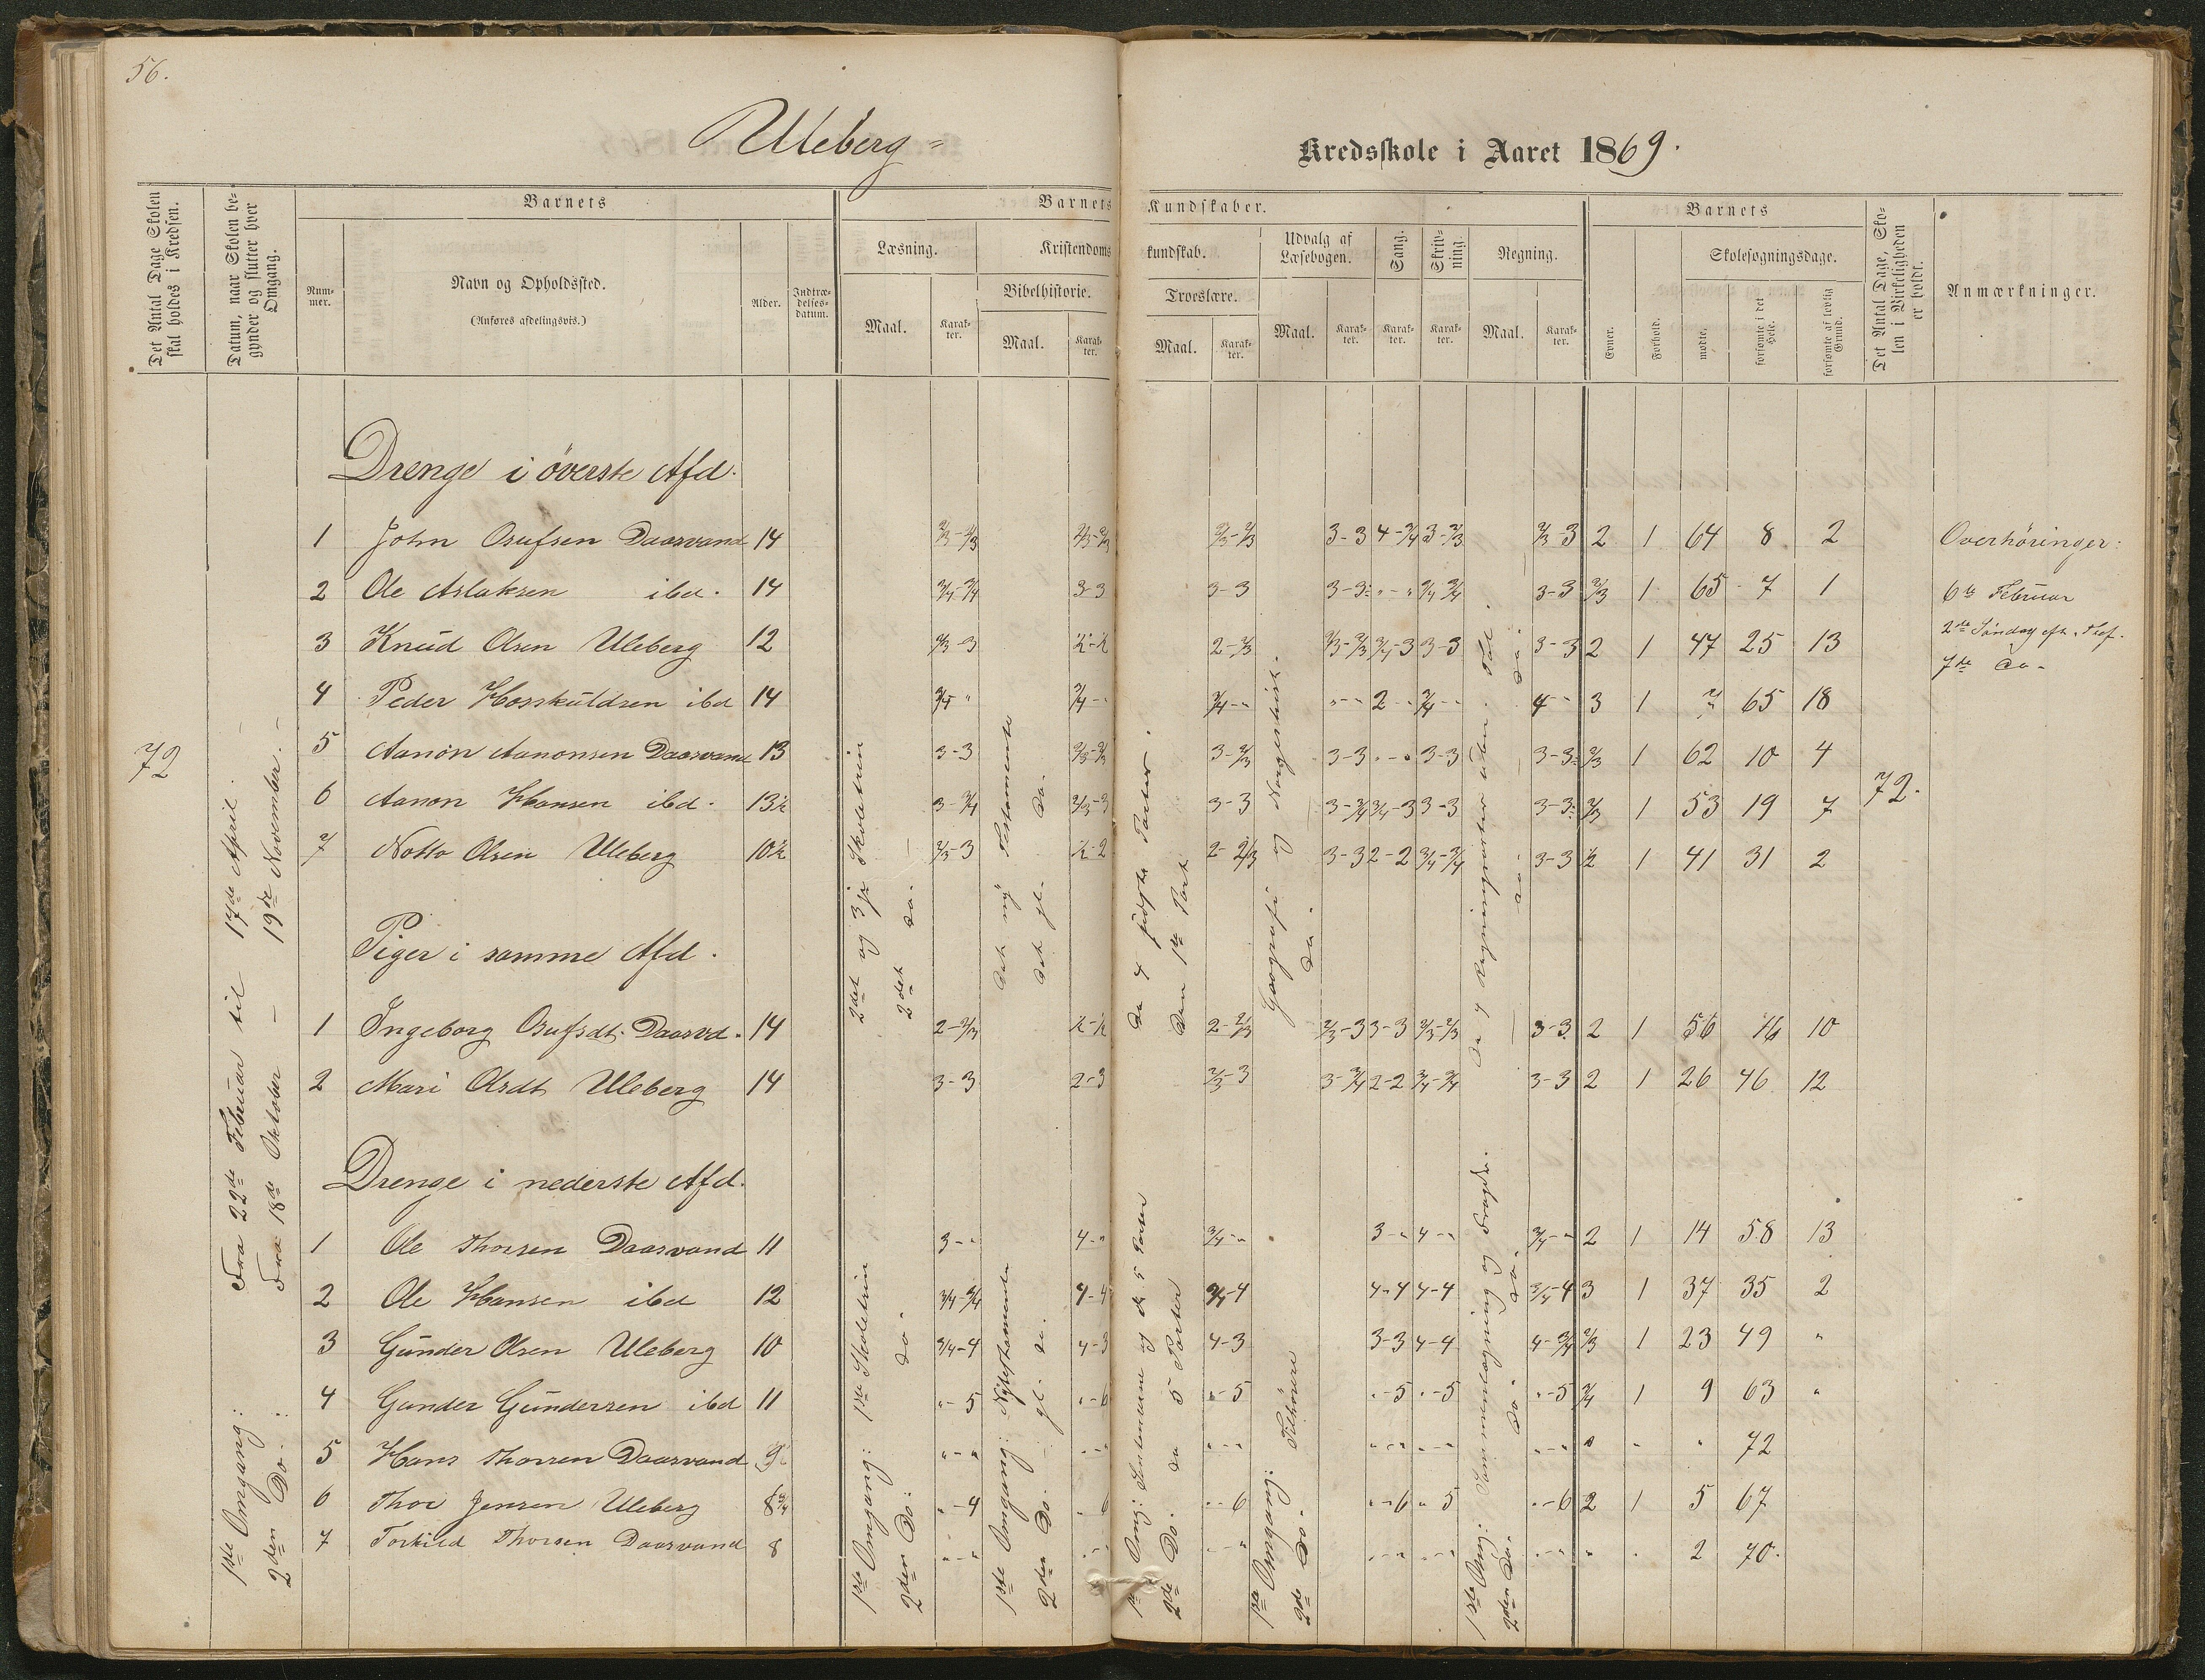 56.
Uleberg=
Kredsskole i Aaret 1869.
Det Antal Dage Skolen skal holdes i Kredsen.
Datum, naar Skolen begynder og slutter hver Omgang.
Barnets
Nummer.
Navn og Opholdssted.
(Anføres afdelingsvis.)
Alder.
Indtrædelsesdatum.
Barnets Kundskaber.
Læsning.
Maal.
Karakter.
Kristendomskundskab.
Bibelhistorie.
Maal.
Karakter.
Troeslære.
Maal.
Karakter.
Udvalg af Læsebogen.
Maal.
Karakter.
Sang.
Karakter.
Skrivning.
Karakter.
Regning.
Maal.
Karakter.
Barnets
Evner.
Forhold.
Skolesøgningsdage.
mødte.
forsømte i det Hele.
forsømte af lovlig Grund.
Det Antal Dage, Skolen i Virkeligheden er holdt.
Anmærkninger.
72
1ste Omgang: Fra 22de Februar til 17de April.
2den Do.: Fra 18de Oktober – 19de November.
Drenge i överste Afd.
1 John Osufsen Daasvand 14 2/3-2/3 2/3-2/3 2/3-2/3 3-3 4-3/4 3-2/3 2/3 3 2 1 64 8 2
2 Ole Aslaksen ibd. 14 3/4-3/4 3-3 3-3 3-3 "-" 3/4 3/4 3-3 2/3 1 65 7 1
3 Knud Olsen Uleberg 12 2/3-3 ½-½ 2-2/3 2/3-2/3 3/4-3 3-3 3-3 2 1 47 25 13
4 Peder Hosskuldsen ibd 14 3/4 " 3/4-" 3/4-" "-" 2-" 3/4-" 4-" 3 1 7 65 18
5 Aanon Aanonsen Daasvand 13 3-3 2/3-2/3 3-2/3 3-3 "-" 3-3 3-3 2/3 1 62 10 4
6 Aanon Hansen ibd. 13½ 3-3/4 2/3-3 3-3 3-3/4 3/4-3 3-3 3-3 2/3 1 53 19 7
7 Notto Olsen Uleberg 10½ 2/3-3 ½-2 2-2/3 3-3 2-2 3/4-3/4 3-3 ½ 1 41 31 2
72.
Piger i samme Afd.
1 Ingeborg Osufsdt. Daasvd. 14 2-2/3 ½-½ 2-2/3 2/3-3 3-3 2/3-2/3 3-3 2 1 56 16 10
2 Mari Olsdt Uleberg 14 3-3 2-3 2/3-3 3-3/4 2-2 3/4-3/4 3-3 2 1 26 46 12
Drenge i nederste Afd.
1 Ole Thorsen Daasvand 11 3-" 4-" 3/4-" 3-" 4-" 3/4-" 2 1 14 58 13
2 Ole Hansen ibd 12 3/4-3/4 4-4 3/4-4 4-4 4-4 3/4-4 3 1 37 35 2
3 Gunder Olsen Uleberg 10 3/4-4 4-3 4-3 3-3 4-4 4-3/4 2/3 1 23 49 "
4 Gunder Gundersen ibd 11 "-5 "-6 "-5 "-5 "-5 "-5 3/4 1 9 63 "
5 Hans Thorsen Daasvand 9 "-" "-" "-" "-" "-" "-" " " " 72
6 Thor Jensen Uleberg 8¾ "-4 " 6 "-6 "-6 "-5 "-6 2 1 5 67
7 Torkild Thorsen Daasvand 8 "-" "-" "-" "-" "-" "-" " " 2 70.
2det og 3je Skoletrin
2det do.
1ste Omgang: 1ste Skoletrin
2den Do: do.
Det ny Testamente
Det gl. Do.
1ste Omgang: Nytestamente
2den Do. gl. do.
De 4 sidste Parter.
Den 1ste Part
1ste Omg: og de 5 Parter
2de Do. do 5 Parter
Geografi og Norgeshist.
Do.
1ste Omgang: Tilhörere
2de Do.
De 4 Regningsarter
do. do.
1ste Omg: Sammenlægning og Fradr.
2den Do. Do. do.
Overhöringer:
6te Februar
2de Söndag eft.
7de do-